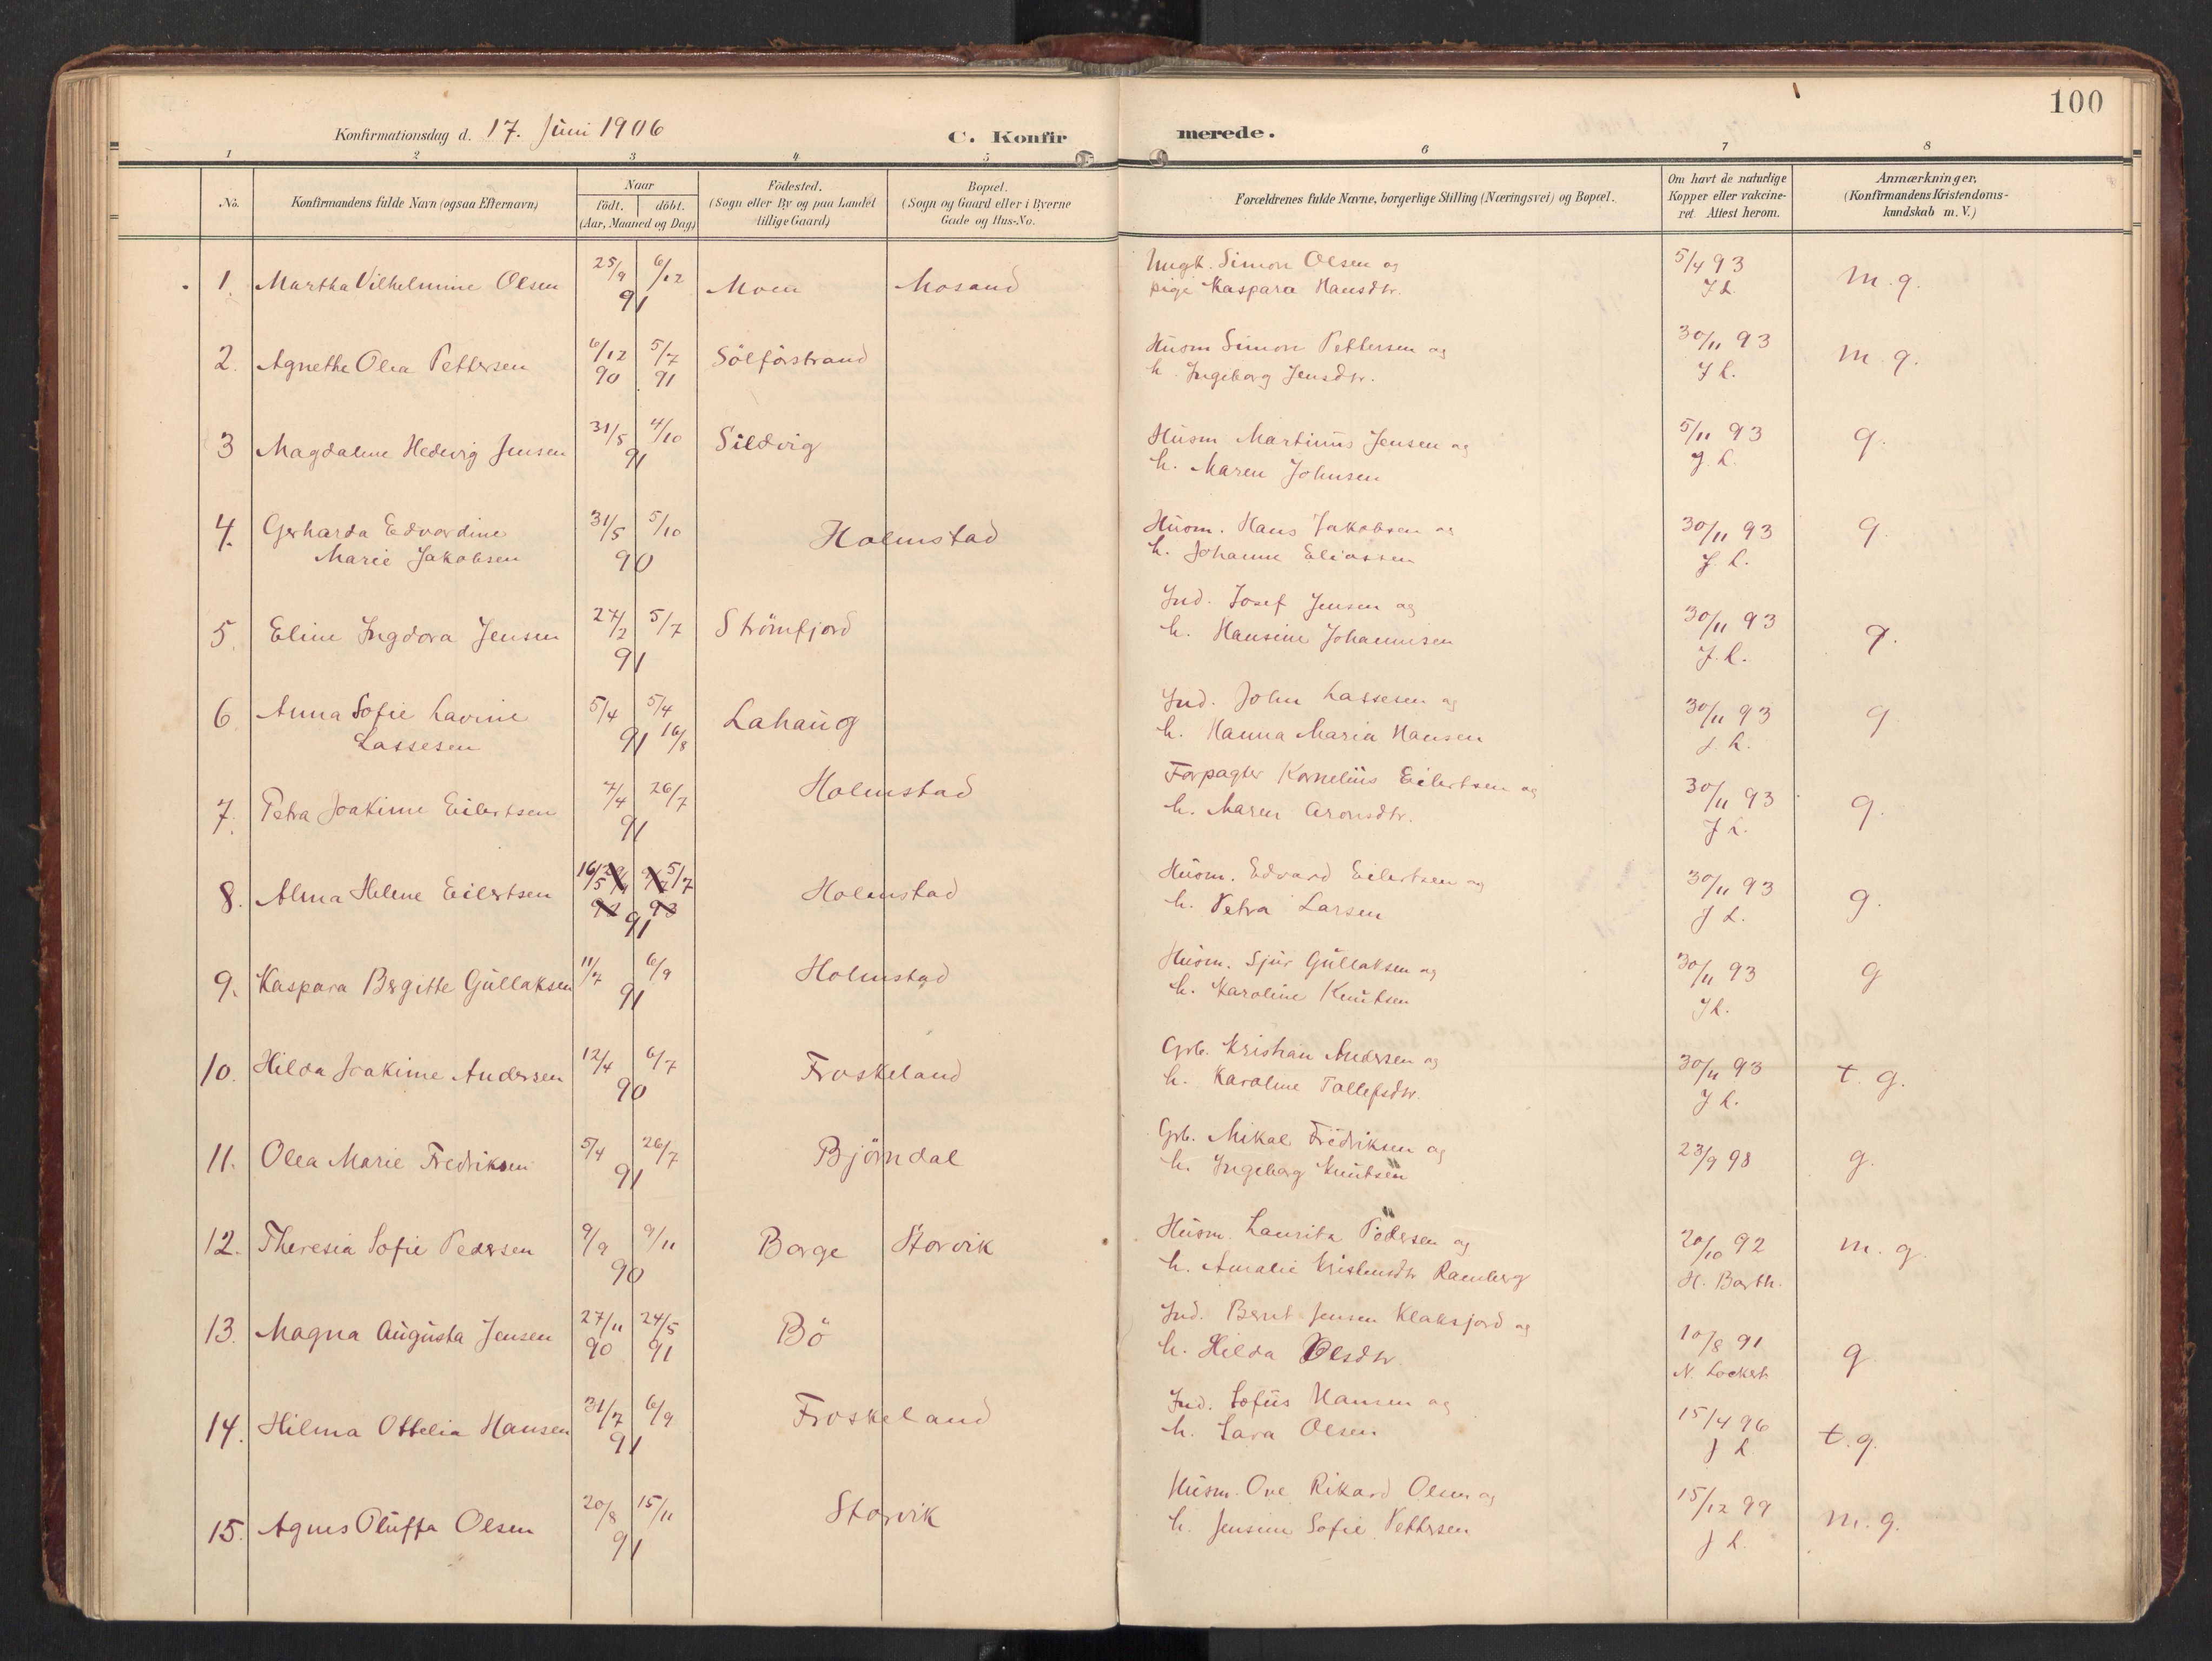 100
Konfirmationsdag d. 17. Juni 1906
C. Konfirmerede.
1 2 3 4 5 6 7 8
No.
Konfirmandens fulde Navn (ogsaa Efternavn)
Naar
födt. döbt.
(Aar, Maaned og Dag)
Födested.
(Sogn eller By og paa Landet
tillige Gaard)
Bopæl.
(Sogn og Gaard eller i Byerne
Gade og Hus-No.
Forældrenes fulde Navne, borgerlige Stilling (Næringsvei) og Bopæl.
Om havt de naturlige
Kopper eller vakcine-
ret. Attest herom.
Anmærkninger.
(Konfirmandens Kristendoms-
kundskab m. V.)
1. Martha Vilhelmine Olsen 25/9 6/12 91 Moen Mosand
Ungk. Simon Olsen og
pige Kaspara Hansdtr.
5/4 93
J L.
m. g.
2. Agnethe Olea Pettersen 6/12 90 5/7 91 Sölförstrand
Husm Simon Pettersen og
h. Ingeborg Jensdtr.
30/11 93
J L.
m. g.
3 Magdalene Hedevig Jensen 31/5 4/10 91 Sildvig
Husm Martinus Jensen og
h. Maren Johnsen
5/11 93
J. L.
g.
4. Gerharda Edvardine
Marie Jakobsen 31/5 5/10 90 Holmstad
Husm. Hans Jakobsen og
h. Johanne Eliassen
30/11 93
J. L.
g.
5. Eline Ingdora Jensen 27/2 5/7 91 Strömfjord
Ind. Josef Jensen og
h. Hansine Johannesen
30/11 93
J. L.
g.
6. Anna Sofie Lavine
Lassesen 5/4 5/4 91 16/8 Lahaug
Ind. John Lassesen og
h. Hanna Maria Hansen
30/11 93
J. L.
g
7. Petra Joakime Eilertsen 7/4 26/7 91 Holmstad
Forpagter Kornelius Eilertsen og
h. Maren Aronsdtr.
30/11 93
J L.
g.
8. Alma Helene Eilertsen 16/5 5/7 91 Holmstad
Husm. Edvard Eilertsen og
h. Petra Larsen
30/11 93
J L.
g.
9. Kaspara Bergitte Gullaksen 11/7 6/9 91 Holmstad
Husm. Sjur Gullaksen og
h. Karoline Knutsen
30/11 93
J L.
g
10. Hilda Joakime Andersen 12/4 6/7 90 Froskeland
Grb. Kristian Andersen og
h. Karoline Tollefsdtr.
30/11 93
J L.
t. g.
11. Olea Marie Fredriksen 5/4 26/7 91 Björndal
Grb. Mikal Fredriksen og
h. Ingeborg Knutsen
23/9 98
g.
12. Theresia Sofie Pedersen 9/9 9/11 90 Borge Storvik
Husm. Laurits Pedersen og
h. Amalie Kristensdtr Ramberg
20/10 92
H. Barth.
m. g.
13. Magna Augusta Jensen 27/11 90 24/5 91 Bö
Ind. Bernt Jensen Klaksjord og
h. Hilda Olsdtr.
10/8 91
N. Lockert
g.
14. Hilma Ottelia Hansen 31/7 6/9 91 Froskeland
Ind. Sofus Hansen og
h. Sara Olsen
15/4 96
J L
t. g.
15. Agnes Oluffa Olsen 20/8 15/11 91 Storvik
Husm. Ove Rikard Olsen og
h. Jensine Sofie Pettersen
15/12 99
J L.
m. g.